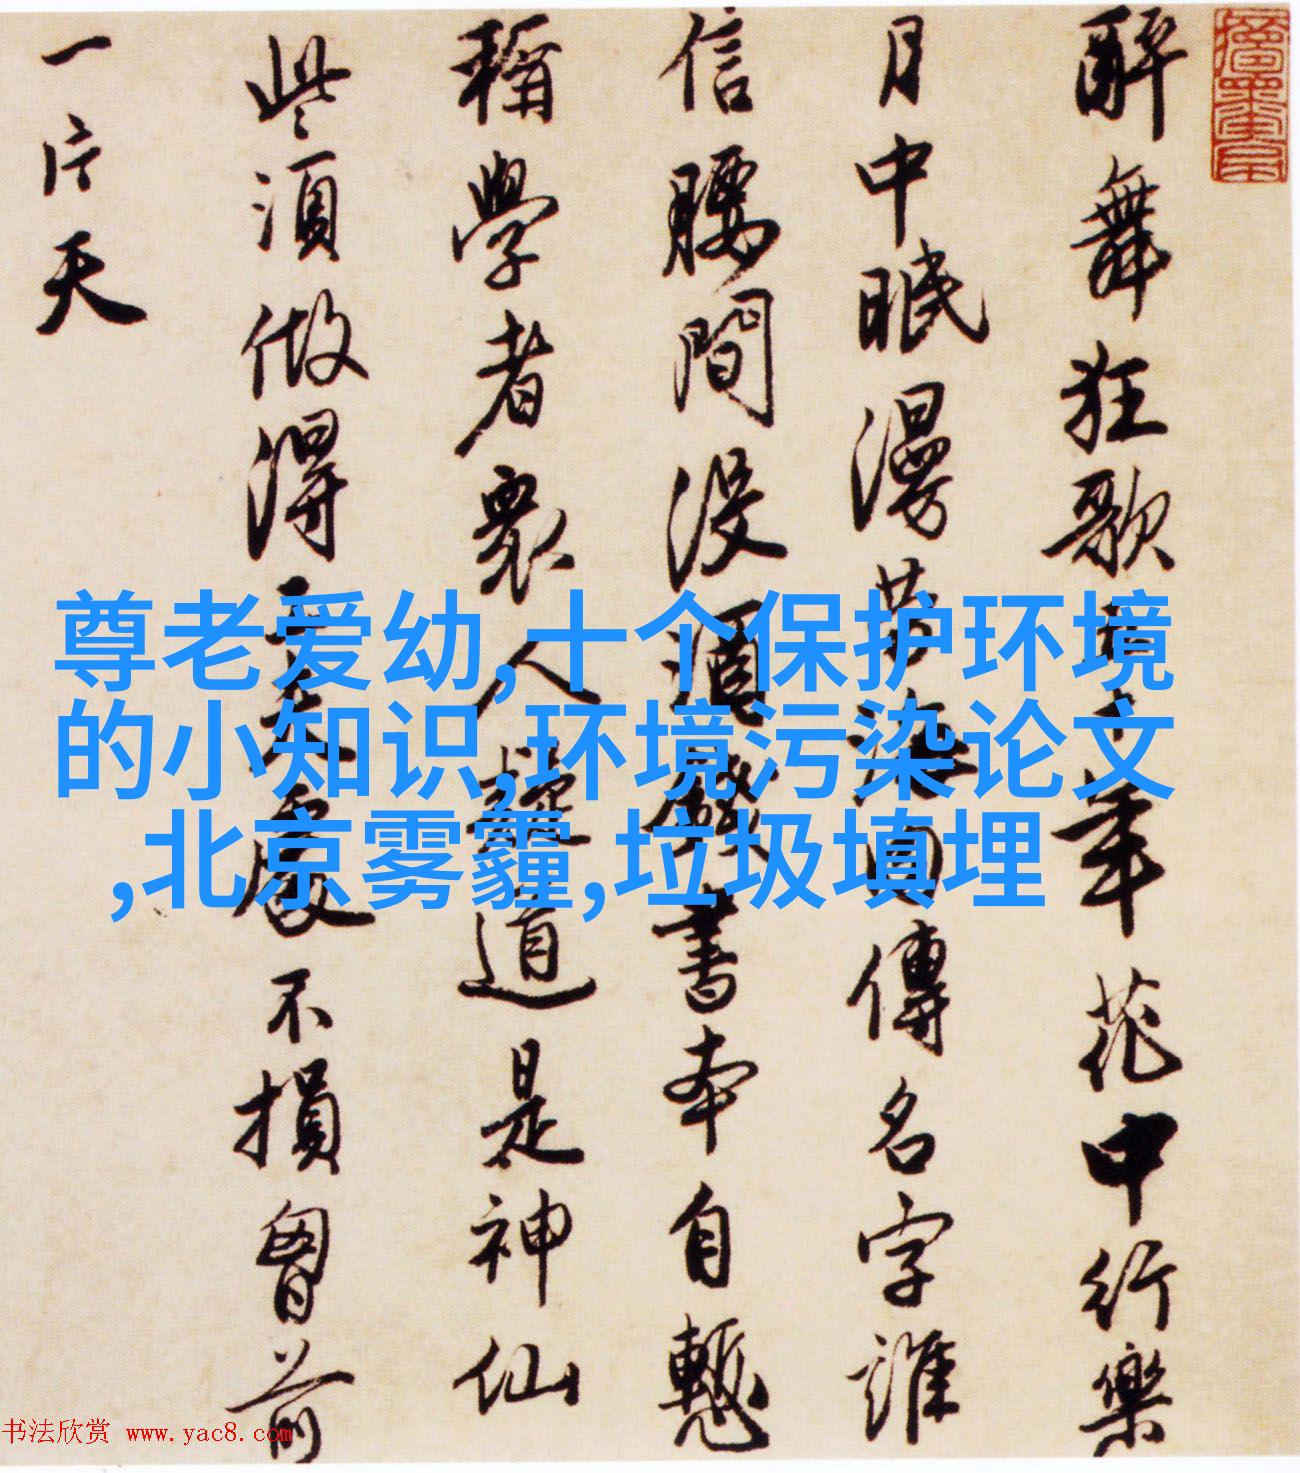 醉舞狂歌五十年花中行樂
月中眠漫勞海内傳名字誰
信腰間沒酒錢書本自慙
稱學者衆人疑道是神仙
些須做得工夫處不損胷前
一片天
尊老爱幼,十个保护环境
的小知识,环境污染论文
,北京雾霾,垃圾填埋
书法欣赏 www.yac8.com